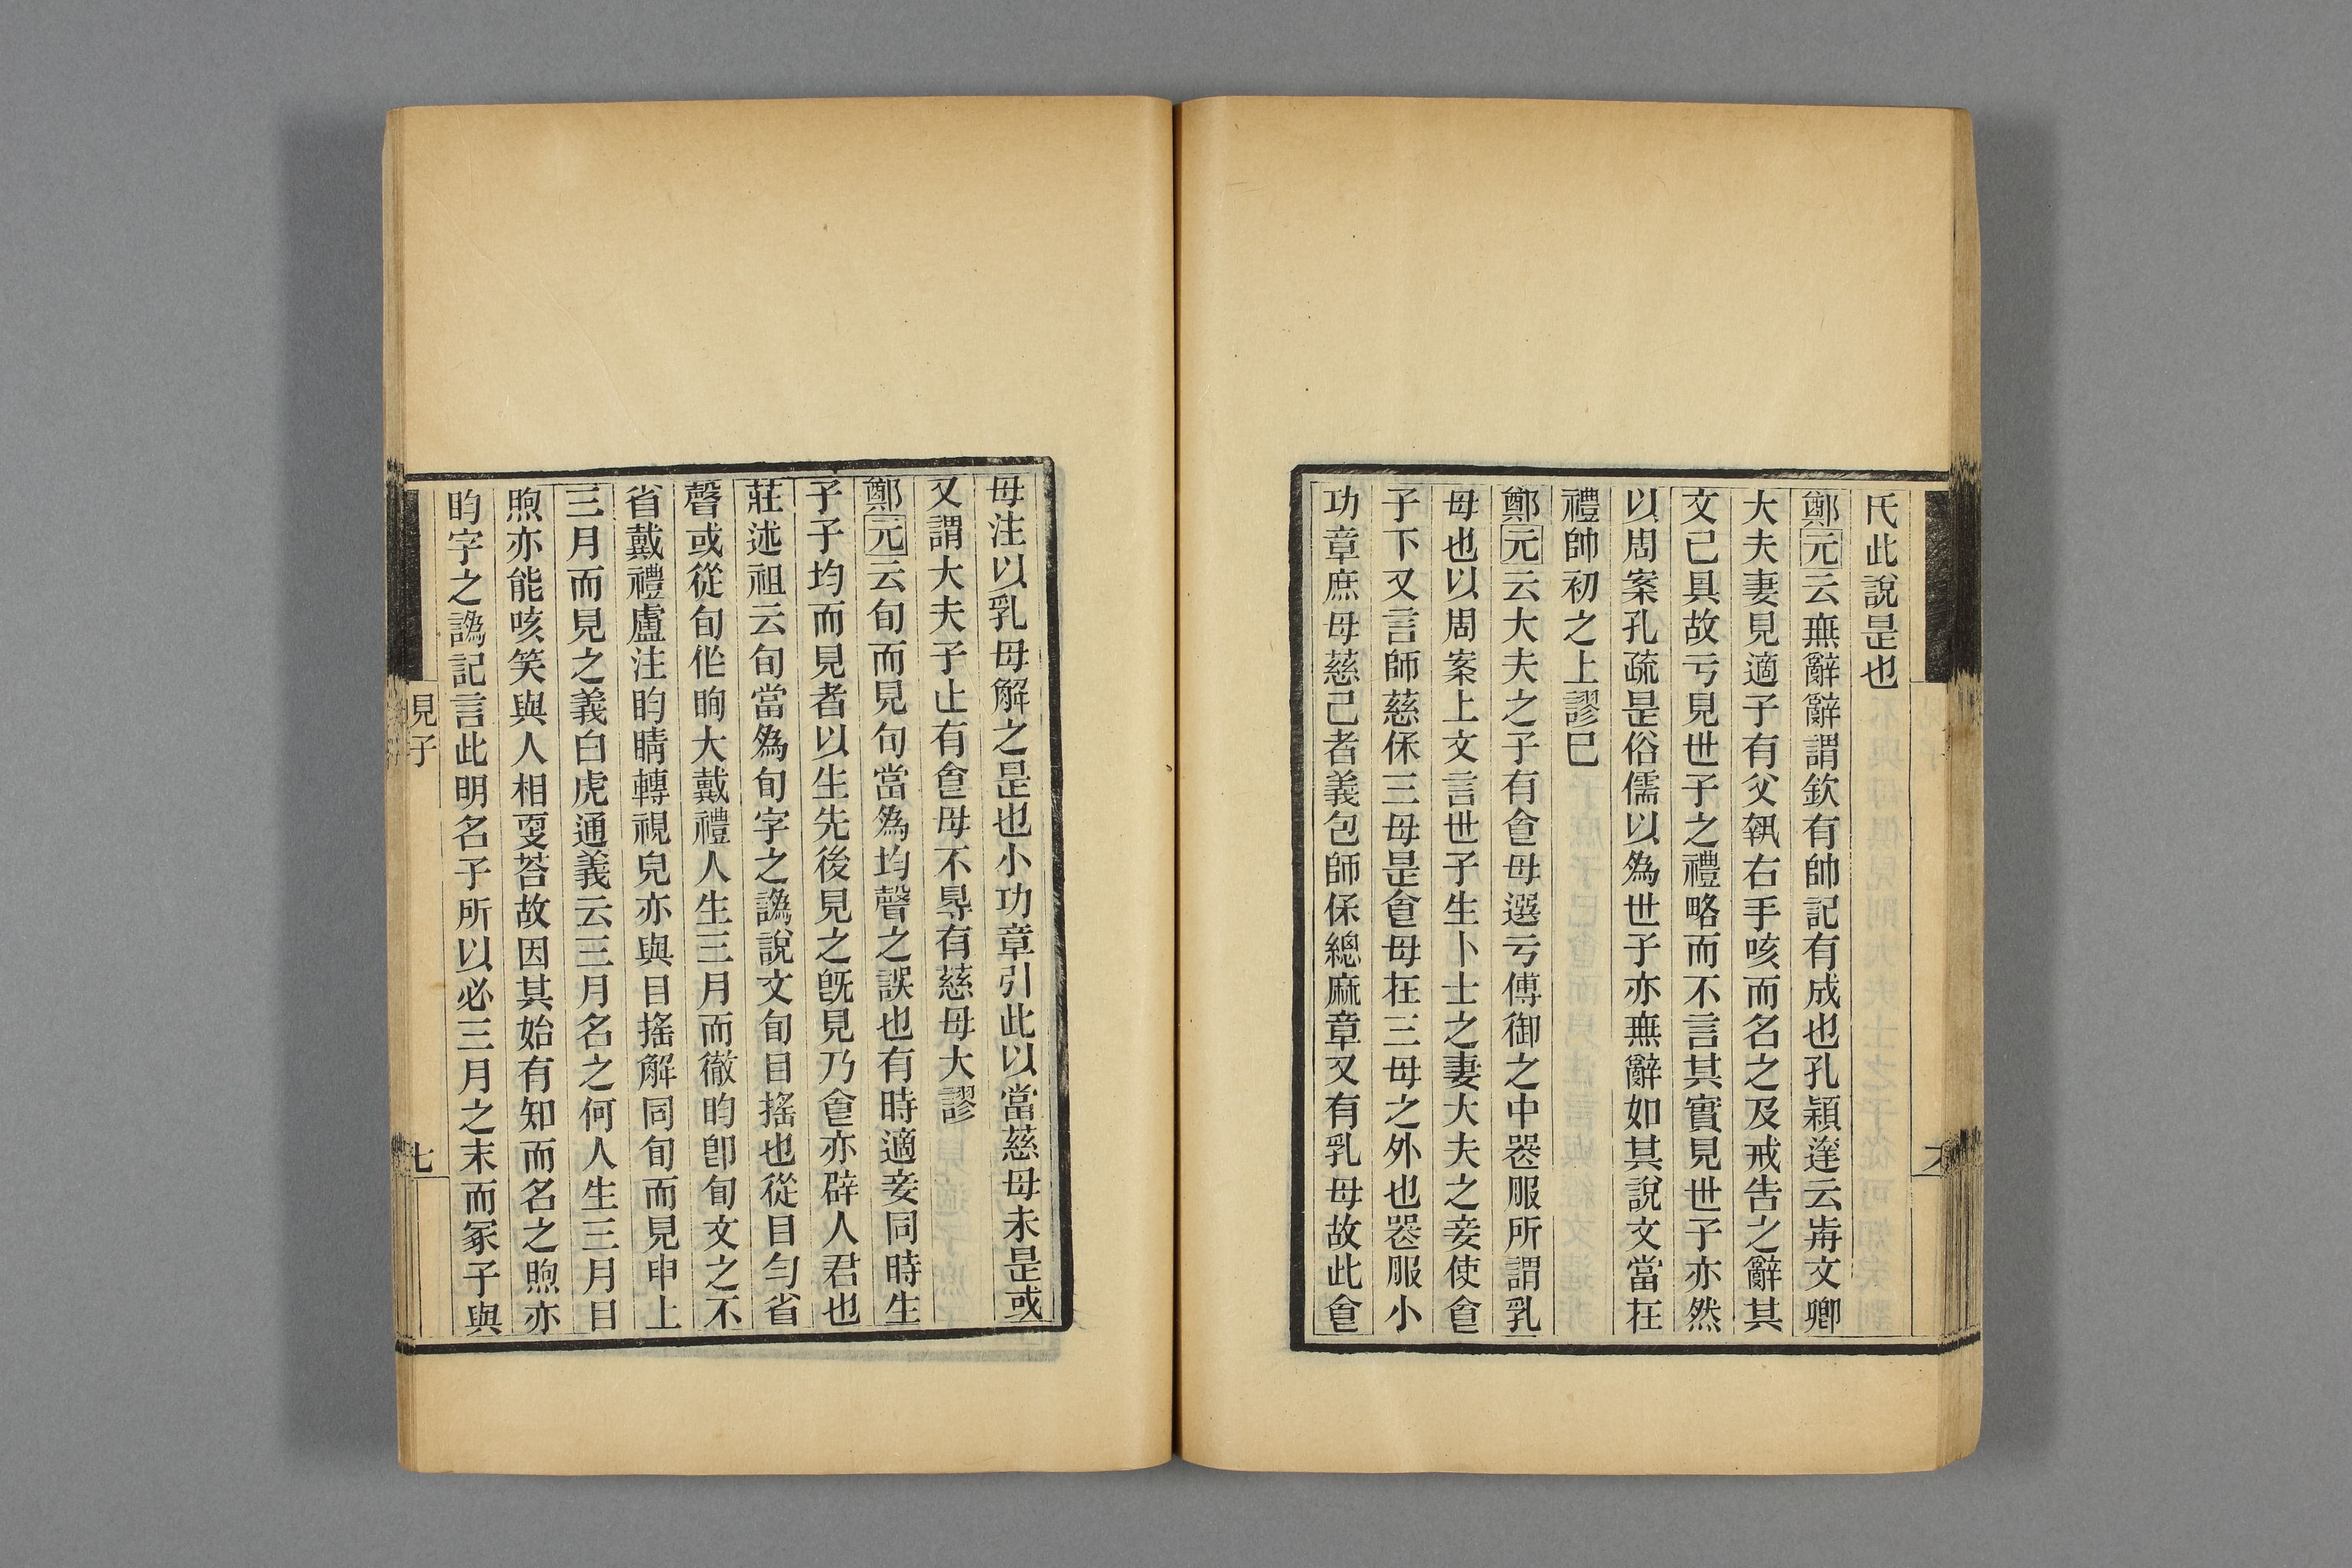 氏此說是也
鄭元云無辭辭謂欽有帥記有成也孔穎達云歬文卿
大夫妻見適子有父執右手咳而名之及戒告之辭其
文已具故亏見世子之禮略而不言其實見世子亦然
以周案孔疏是俗儒以爲世子亦無辭如其說文當在
禮帥初之上謬巳
鄭元云大夫之子有食母選亏傅御之中喪服所謂乳
母也以周案上文言世子生卜士之妻大夫之妾使食
子下又言師慈保三母是食母在三母之外也喪服小
功章庶母慈己者義包師保總麻章又有乳母故此食
母注以乳母解之是也小功章引此以當慈母未是或
又謂大夫子止有食母不得有慈母大謬
鄭元云旬而見旬當爲均均聲之誤也有時適妾同時生
子子均而見者以生先後見之旣見乃食亦辟人君也
莊述祖云旬當爲旬字之譌說文旬目搖也從目勻省
聲或從旬作眴大戴禮人生三月而徹盷卽旬文之不
省戴禮盧注盷睛轉視皃亦與目搖解同旬而見申上
三月而見之義白虎通義云三月名之何人生三月目
煦亦能咳笑與人相更荅故因其始有知而名之煦亦
盷字之譌記言此明名子所以必三月之末而冢子與
見子
七